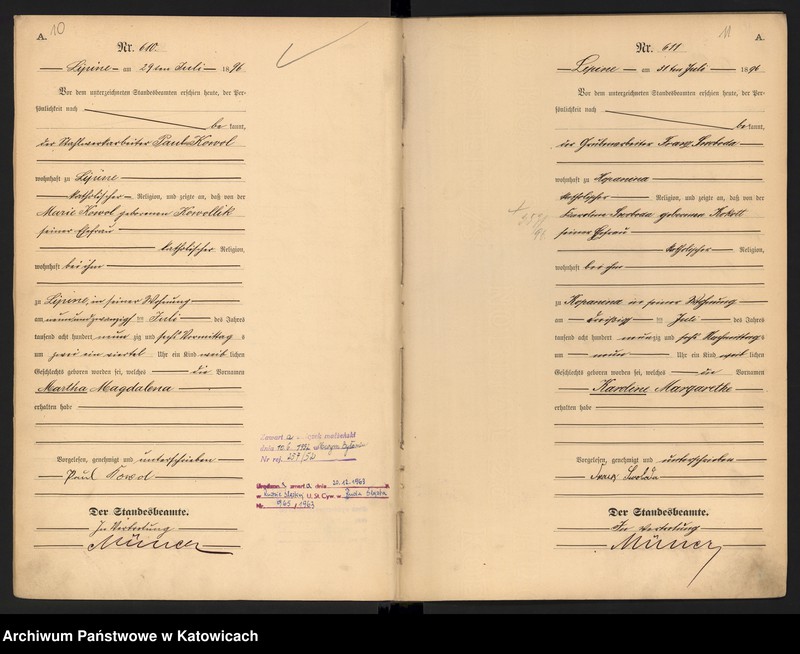 A.
10
Nr. 610.
Lipine am 29ten Juli 1896
Vor dem unterzeichneten Standesbeamten erschien heute, der Per-
sönlichkeit nach
be kannt,
der Stahlwerkarbeiter Paul Kowol
wohnhaft zu Lipine
katholischer Religion, und zeigte an, daß von der
Marie Kowol geborenen Kowollik
seiner Ehefrau
katholischer Religion,
wohnhaft bei ihm
zu Lipine, in seiner Wohnung
am neunundzwanzigsten Juli des Jahres
tausend acht hundert neunzig und sechs Vormittags
um zwei ein viertel Uhr ein Kind weiblichen
Geschlechts geboren worden sei, welches die Vornamen
Martha Magdalena
erhalten habe
Vorgelesen, genehmigt und unterschrieben
Paul Kowol
Der Standesbeamte.
In Vertretung
Münch
dnia 10.6. 1932
Nr rej.
zmarł a dnia 20.12.1963
w Rudzie Śląskiej U. St. Cyw. w Ruda Śląska
Nr. 1965 / 1963
11
A.
Nr. 611
Lipine am 31ten Juli 1896
Vor dem unterzeichneten Standesbeamten erschien heute, der Per-
sönlichkeit nach
be kannt,
der Grubenarbeiter Franz Swoboda
wohnhaft zu Kopanina
katholischer Religion, und zeigte an, daß von der
Swoboda geborenen
seiner Ehefrau
katholischer Religion,
wohnhaft bei ihm
zu Kopanina in seiner Wohnung
am dreißigsten Juli des Jahres
tausend acht hundert neunzig und sechs Nachmittags
um neun Uhr ein Kind weiblichen
Geschlechts geboren worden sei, welches die Vornamen
Margarethe
erhalten habe
Vorgelesen, genehmigt und unterschrieben
Franz Swoboda
Der Standesbeamte.
In Vertretung
Münch
Archiwum Państwowe w Katowicach